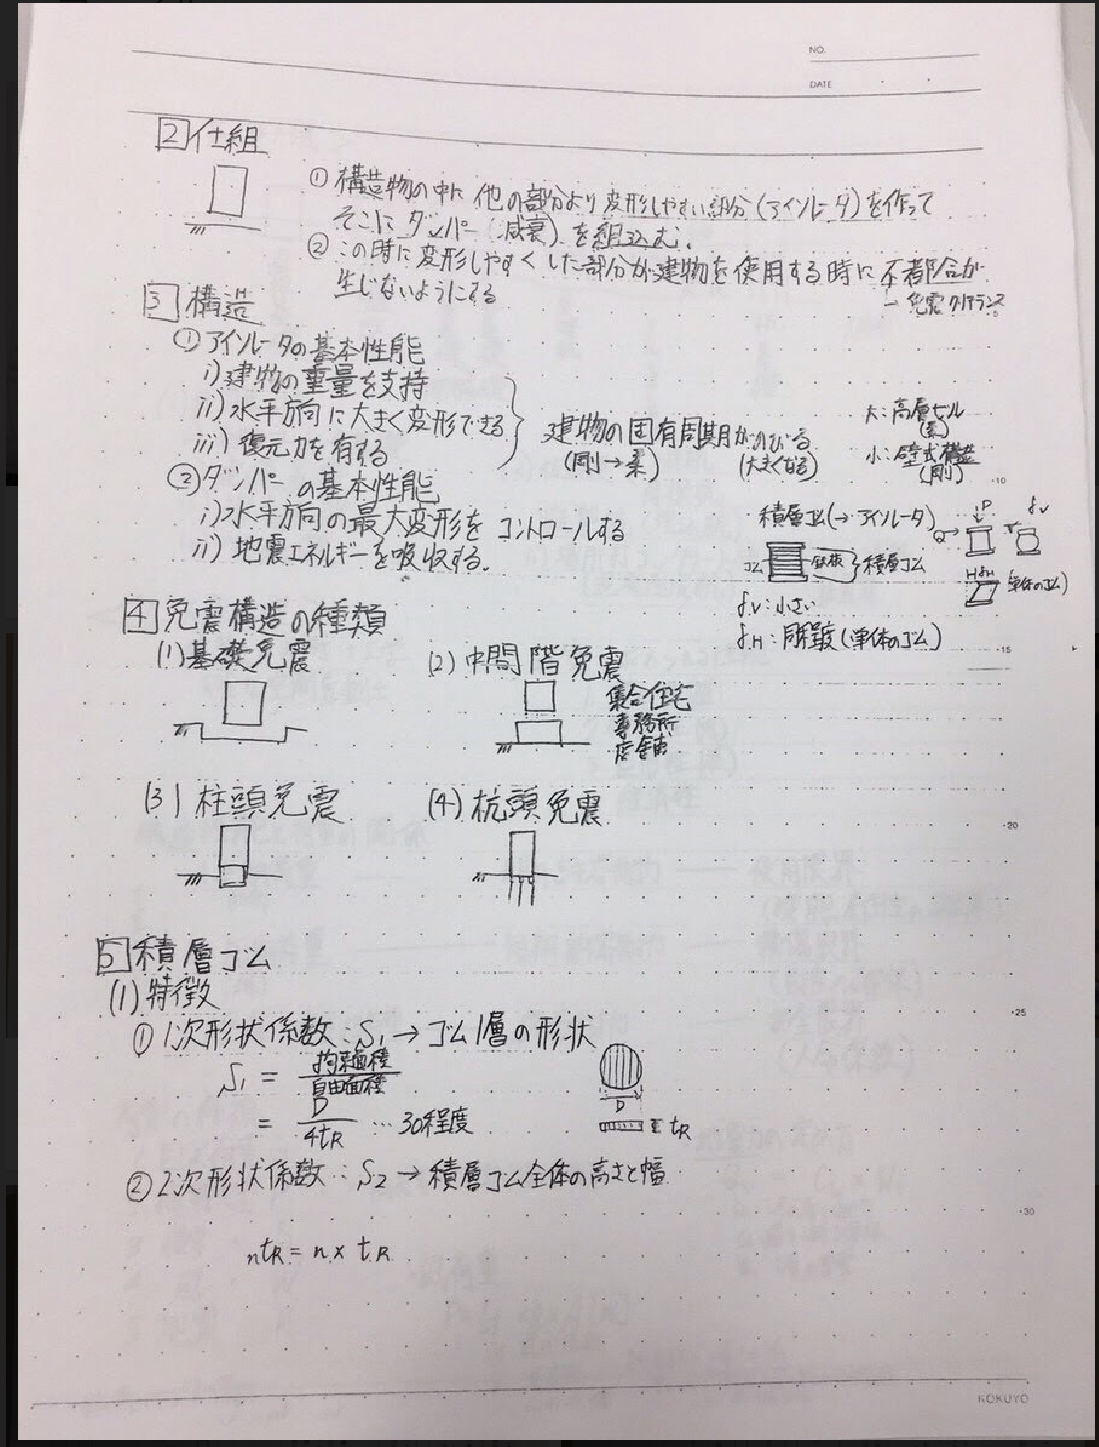 NO.
DATE
2 仕組
① 構造物の中に他の部分より変形しやすい部分(アイソレータ)を作って
そこにダンパー(減衰)を組込む。
② この時に変形しやすくした部分が建物を使用する時に不都合が
生じないようにする
→ 免震クリアランス
3 構造
① アイソレータの基本性能
i) 建物の重量を支持
ii) 水平方向に大きく変形できる
iii) 復元力を有する
建物の固有周期がのびる
(剛→柔) (大きくなる)
大:高層ビル
(柔)
小:壁式構造
(剛)
② ダンパーの基本性能
i) 水平方向の最大変形をコントロールする
ii) 地震エネルギーを吸収する.
10
積層ゴム(→アイソレータ)
P
δv
ゴム 鉄板 積層ゴム
H δH (単体のゴム)
δv:小さい
δH:同程度(単体のゴム)
4 免震構造の種類
15
(1) 基礎免震
(2) 中間階免震
集合住宅
事務所
店舗
(3) 柱頭免震
(4) 杭頭免震
20
5 積層ゴム
(1) 特徴
25
① 1次形状係数:S1→ゴム1層の形状
S1 = 拘束面積/自由面積
= D/4tR … 30程度
D
tR
② 2次形状係数:S2→積層ゴム全体の高さと幅
30
ntR = n × tR
KOKUYO